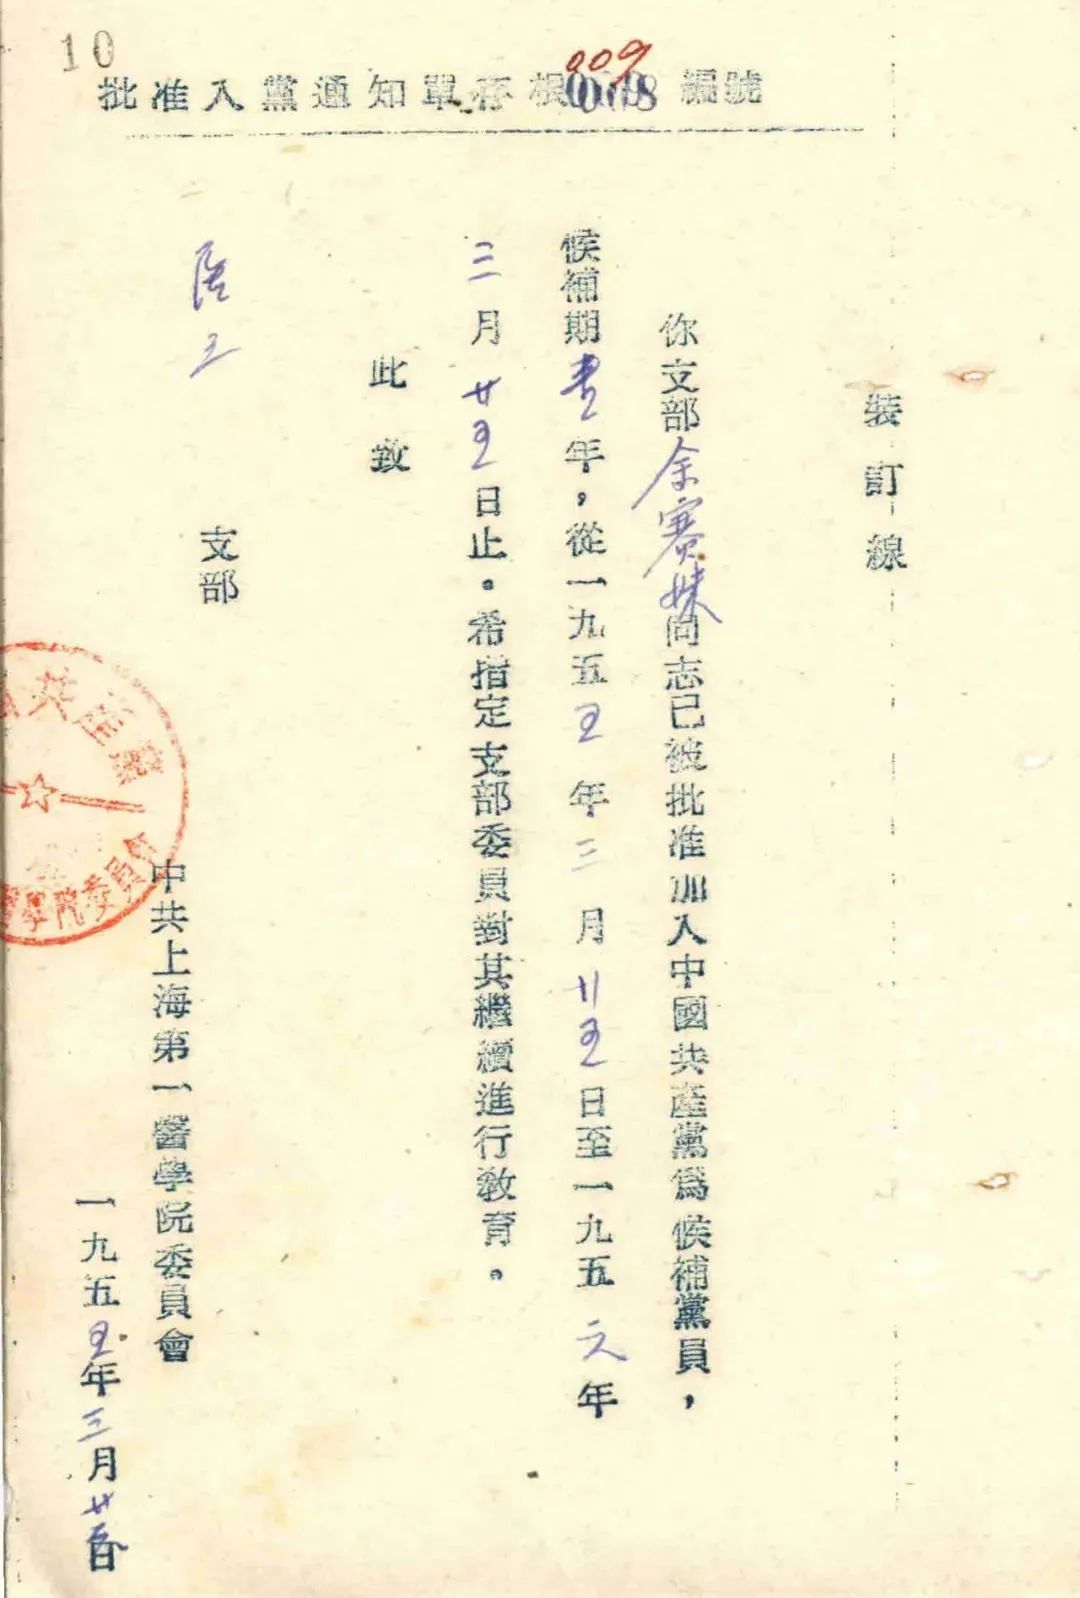 10
009
批准入黨通知單存根 編號
裝訂線
你支部余賽妹同志已被批准加入中國共產黨為候補黨員，
候補期壹年，從一九五五年三月廿五日至一九五六年
三月廿五日止。希指定支部委員對其繼續進行教育。
此致
支部
中共上海第一醫學院委員會
一九五五年三月廿五日
共產黨
學院委員會